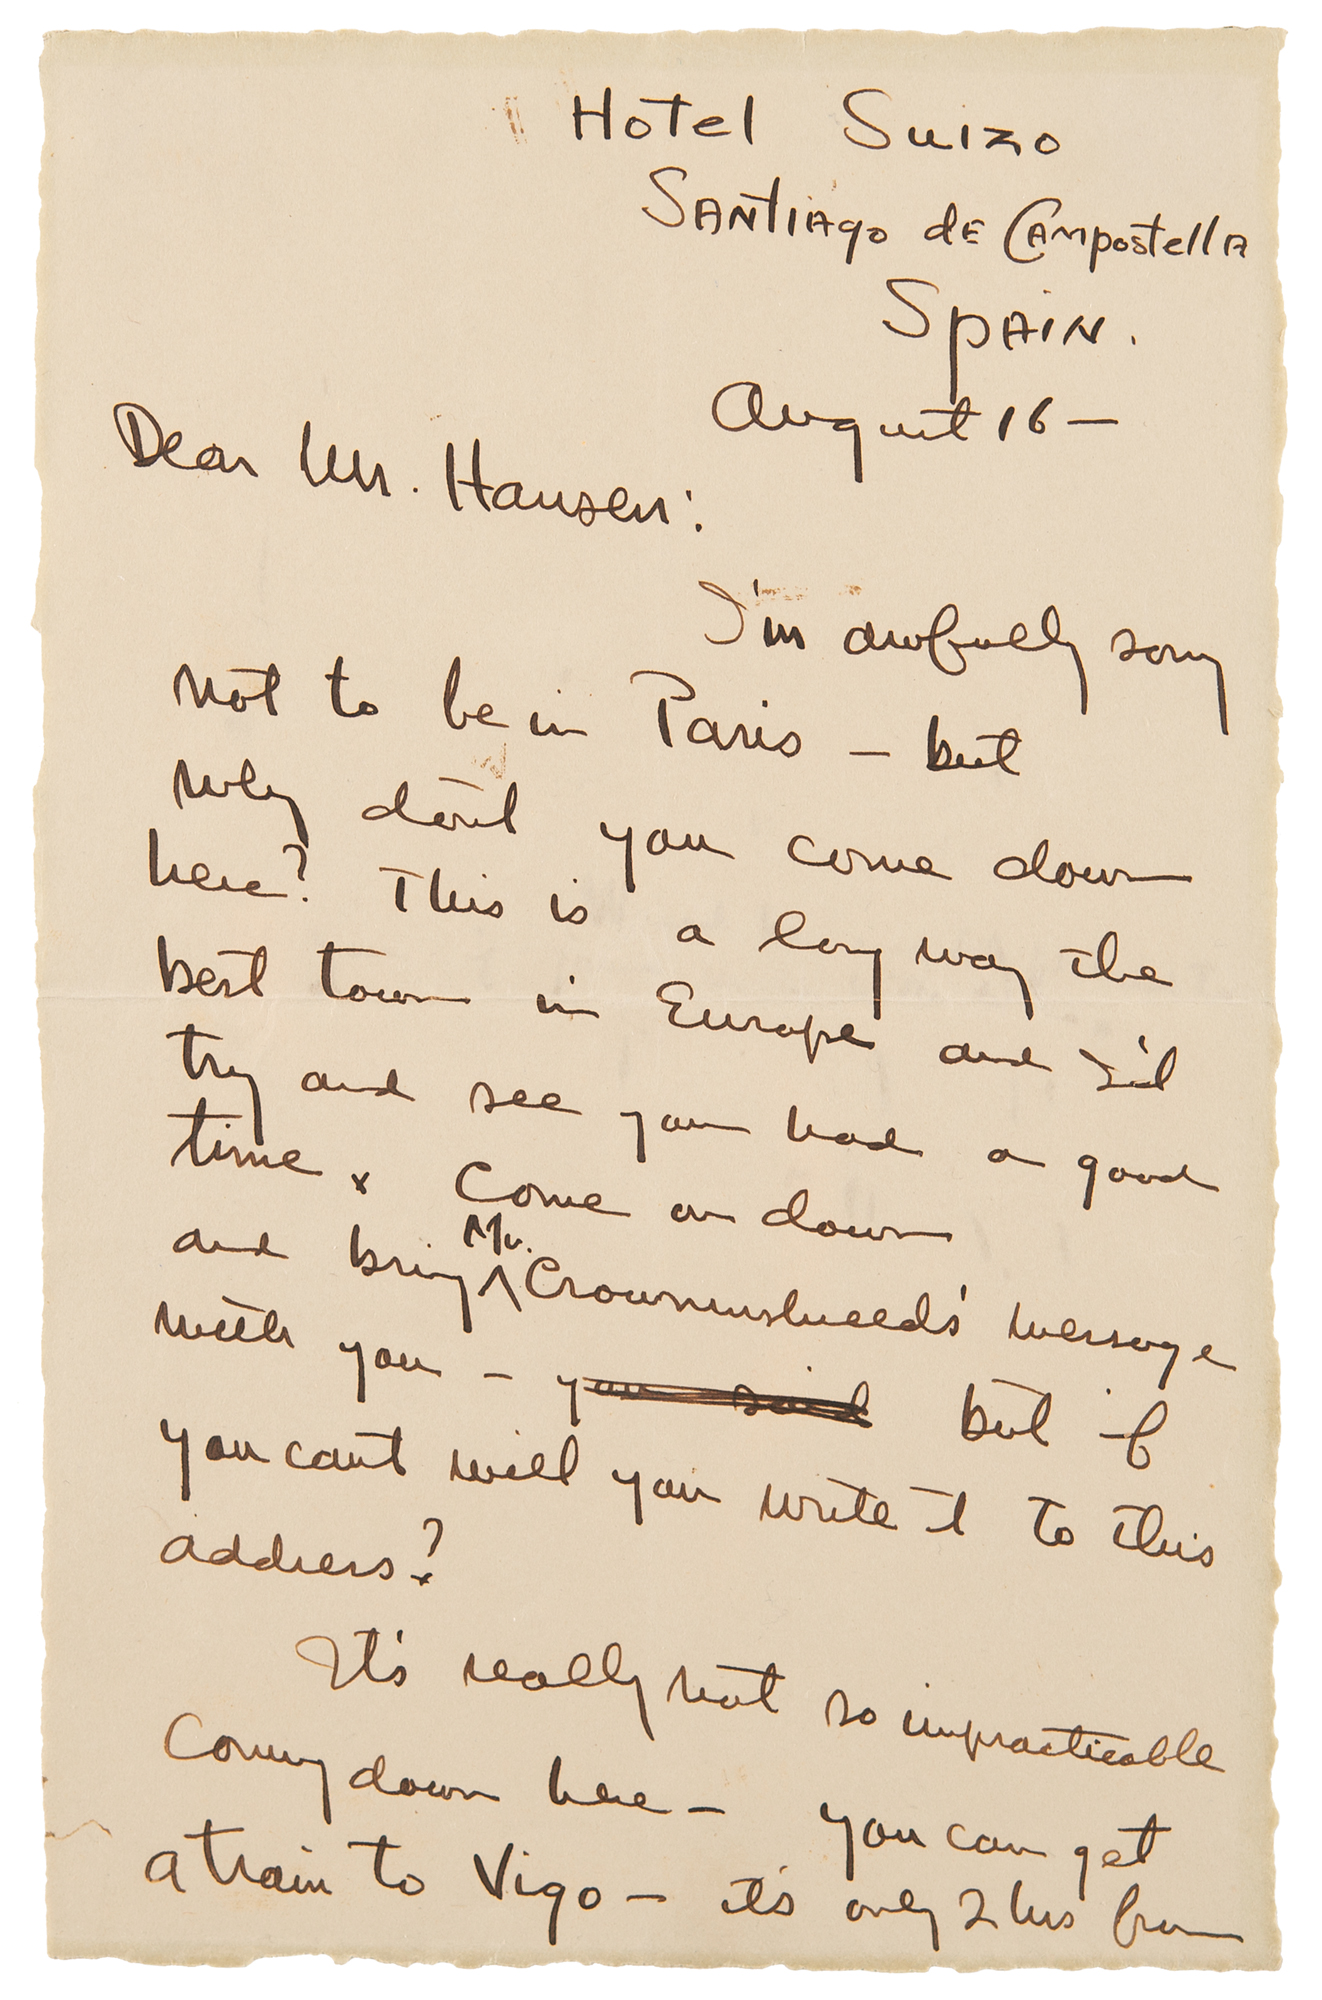 Hotel Suizo
Santiago de Campostella
Spain.
August 16 —
Dear Mr. Hansen:
I'm awfully sorry
not to be in Paris — but
why don't you come down
here? This is a long way the
best town in Europe and I'd
try and see you had a good
time x Come on down
and bring Mr. Crowninshields' message
with you — you said but if
you can't will you write it to this
address?
It's really not so impracticable
Coming down here — you can get
a train to Vigo — it's only 2 hrs from